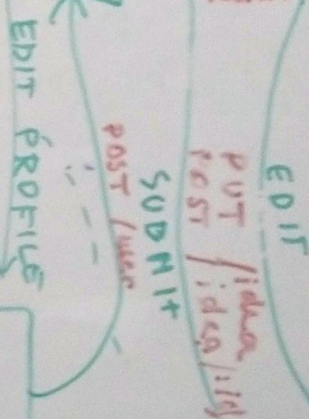 EDIT
PUT /idea
POST /idea/:id
SUBMIT
POST /user
EDIT PROFILE